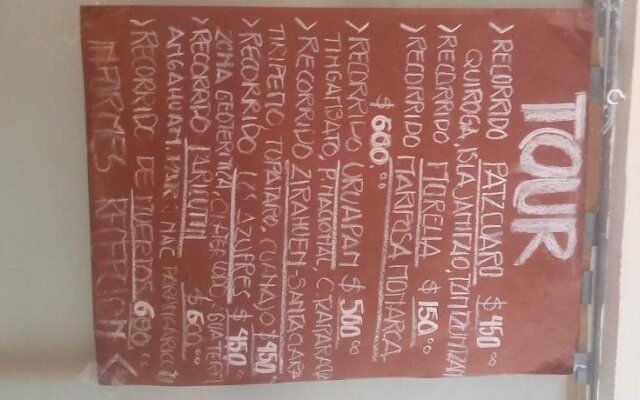 TOUR
> RECORRIDO PATZCUARO $450
QUIROGA, ISLA JANITZIO, TZINTZUNTZAN
> RECORRIDO MORELIA $150.00
> RECORRIDO MARIPOSA MONARCA
$600.00
> RECORRIDO URUAPAN $500.00
TINGAMBATO, P. NACIONAL,
> RECORRIDO ZIRAHUEN-SANTA CLARA
TUPATARO, CUANAJO $450
> RECORRIDO LOS AZUFRES $450
ZONA GEOTERMICA,
> RECORRIDO PARICUTIN $600
ANGAHUAN
> RECORRIDO DE MUERTOS 600.00
INFORMES RECEPCION <